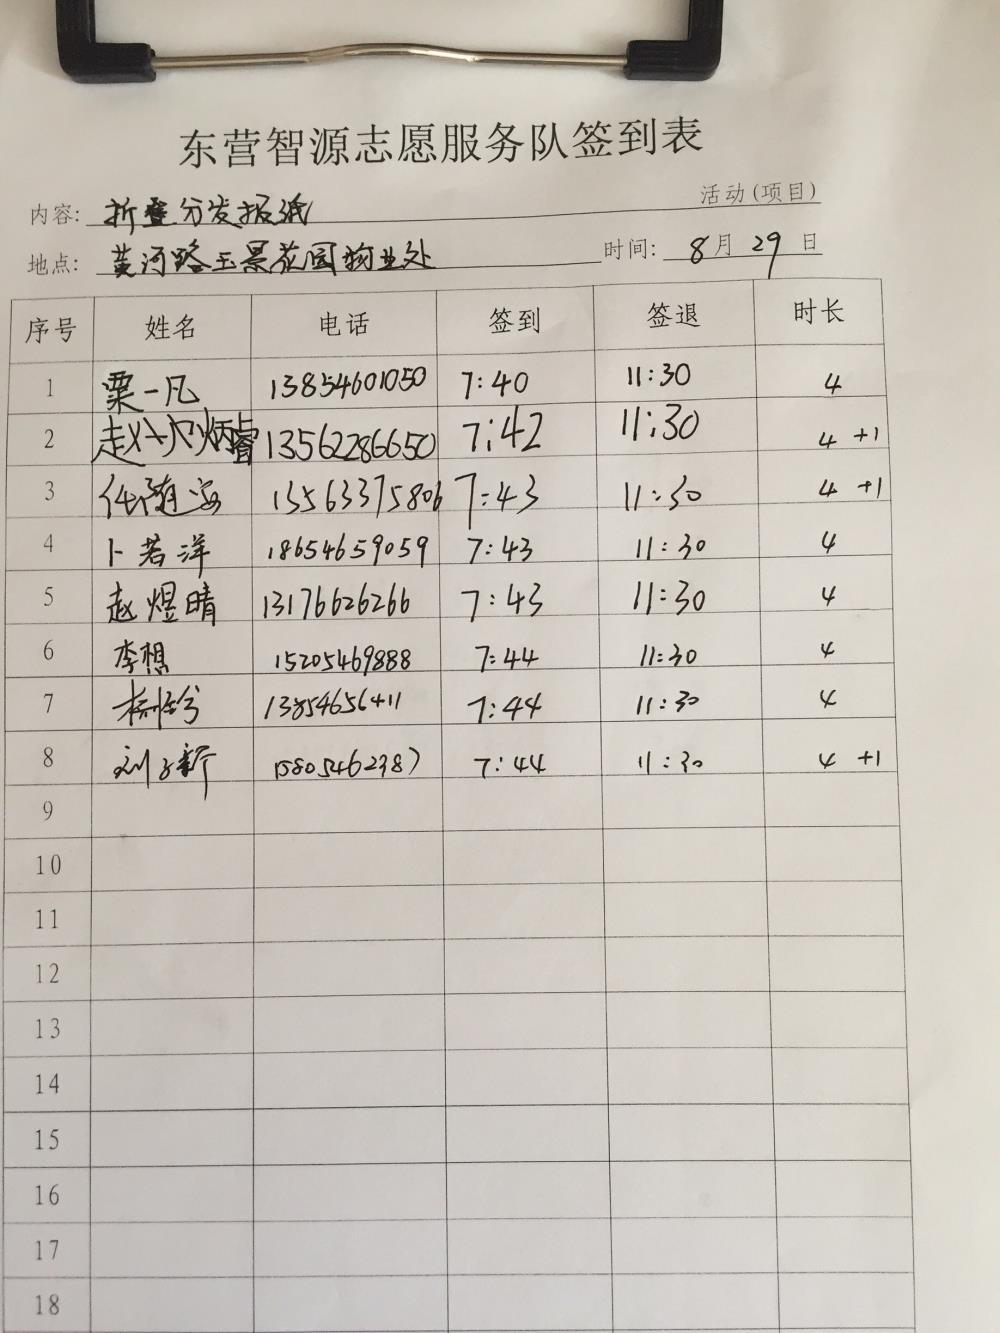 东营智源志愿服务队签到表
内容: 折叠分发报纸 活动(项目)
地点: 黄河路玉景花园物业处 时间: 8月29日
序号 姓名 电话 签到 签退 时长
1 栗一凡 13854601050 7:40 11:30 4
2 赵 炳睿 13562286650 7:42 11:30 4 +1
3 任随安 13563375806 7:43 11:30 4 +1
4 卜若洋 18654659059 7:43 11:30 4
5 赵煜晴 13176626266 7:43 11:30 4
6 李想 15205469888 7:44 11:30 4
7 13854656411 7:44 11:30 4
8 刘子新 15805462387 7:44 11:30 4 +1
9
10
11
12
13
14
15
16
17
18